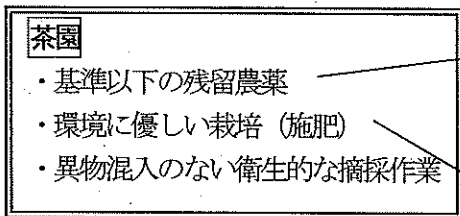 茶園
・基準以下の残留農薬
・環境に優しい栽培（施肥）
・異物混入のない衛生的な摘採作業